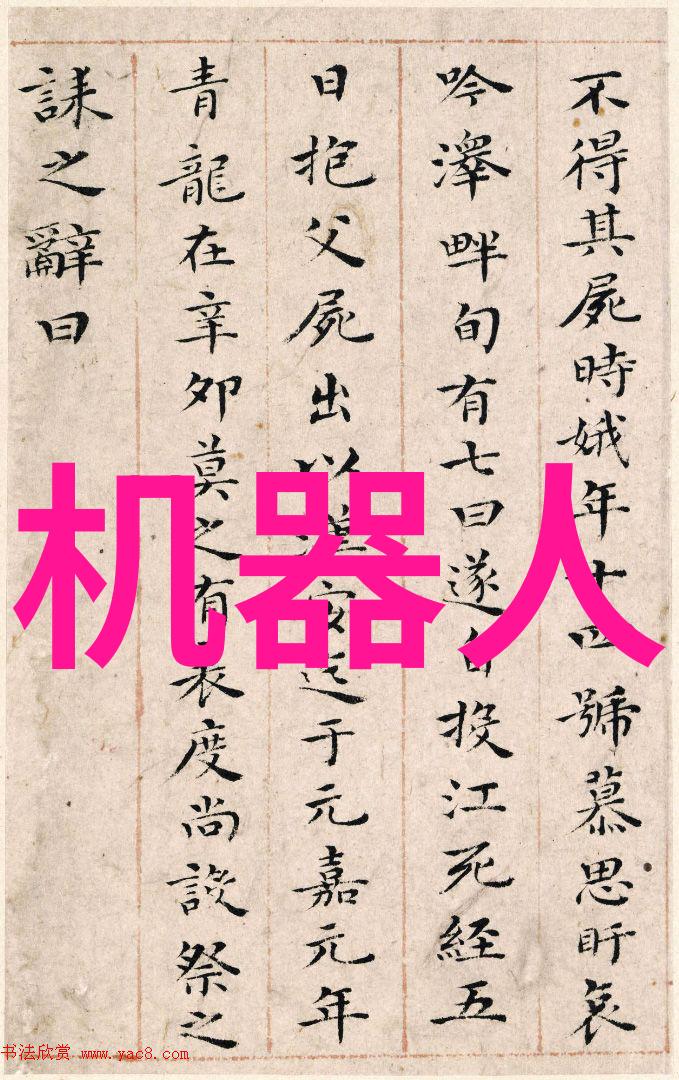 不得其屍時娥年十四號慕思盱哀
吟澤畔旬有七日遂自投江死經五
日抱父屍出以漢安迄于元嘉元年
青龍在辛卯莫之有表度尚設祭之
誄之辭曰
机器人
书法欣赏 www.yac8.com